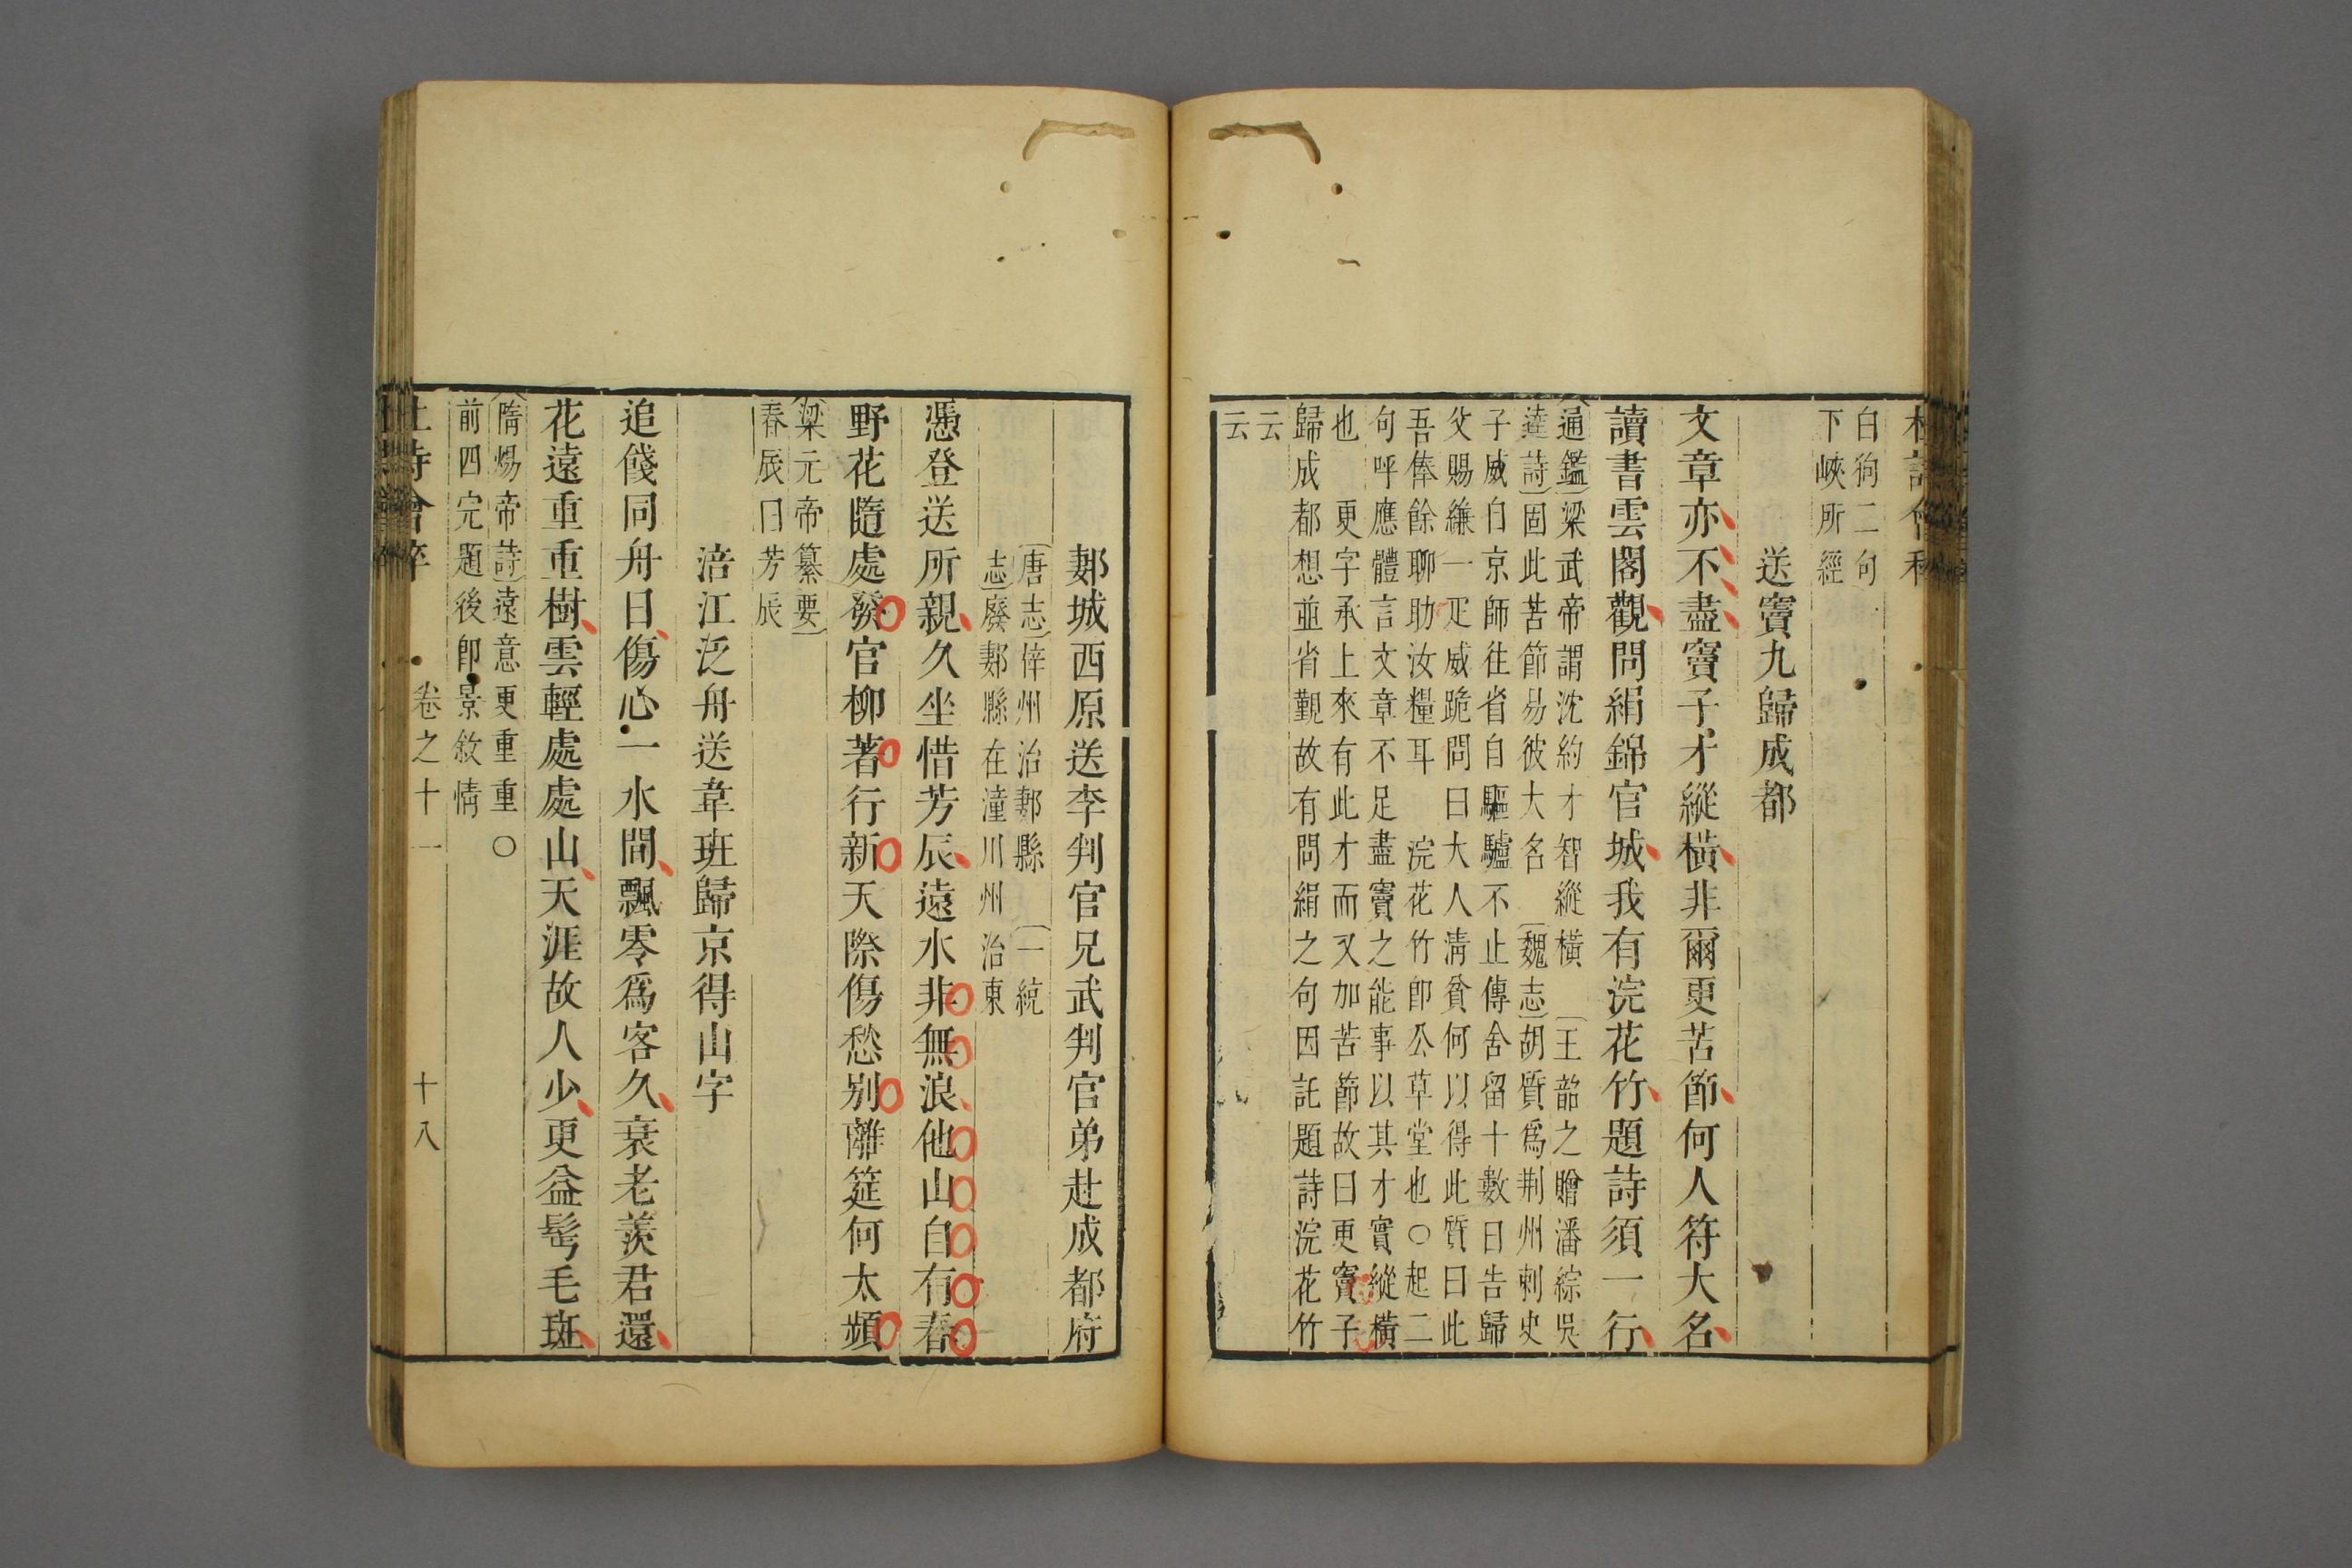 白狗二句
下峽所經
送竇九歸成都
文章亦不盡竇子才縱橫非爾更苦節何人符大名
讀書雲閣觀問絹錦官城我有浣花竹題詩須一行
通鑑梁武帝謂沈約才智縱橫 王韶之贈潘綜吳
逵詩固此苦節易彼大名 魏志胡質爲荆州刺史
子威自京師往省自驅驢不止傳舍留十數日告歸
父賜縑一疋威跪問曰大人清貧何以得此質曰此
吾俸餘聊助汝糧耳 浣花竹卽公草堂也○起二
句呼應體言文章不足盡竇之能事以其才實縱橫
也 更字承上來有此才而又加苦節故曰更竇子
歸成都想並省覲故有問絹之句因託題詩浣花竹
云
云
郪城西原送李判官兄武判官弟赴成都府
唐志倖州治郪縣 一統
志廢郪縣在潼川州治東
憑登送所親久坐惜芳辰遠水非無浪他山自有春
野花隨處發官柳著行新天際傷愁别離筵何太頻
梁元帝纂要
春辰曰芳辰
涪江泛舟送韋班歸京得山字
追餞同舟日傷心一水間飄零爲客久衰老羨君還
花遠重重樹雲輕處處山天涯故人少更益鬂毛斑
隋煬帝詩遠意更重重○
前四完題後卽景敘情
詩會稡 卷之十一 十八